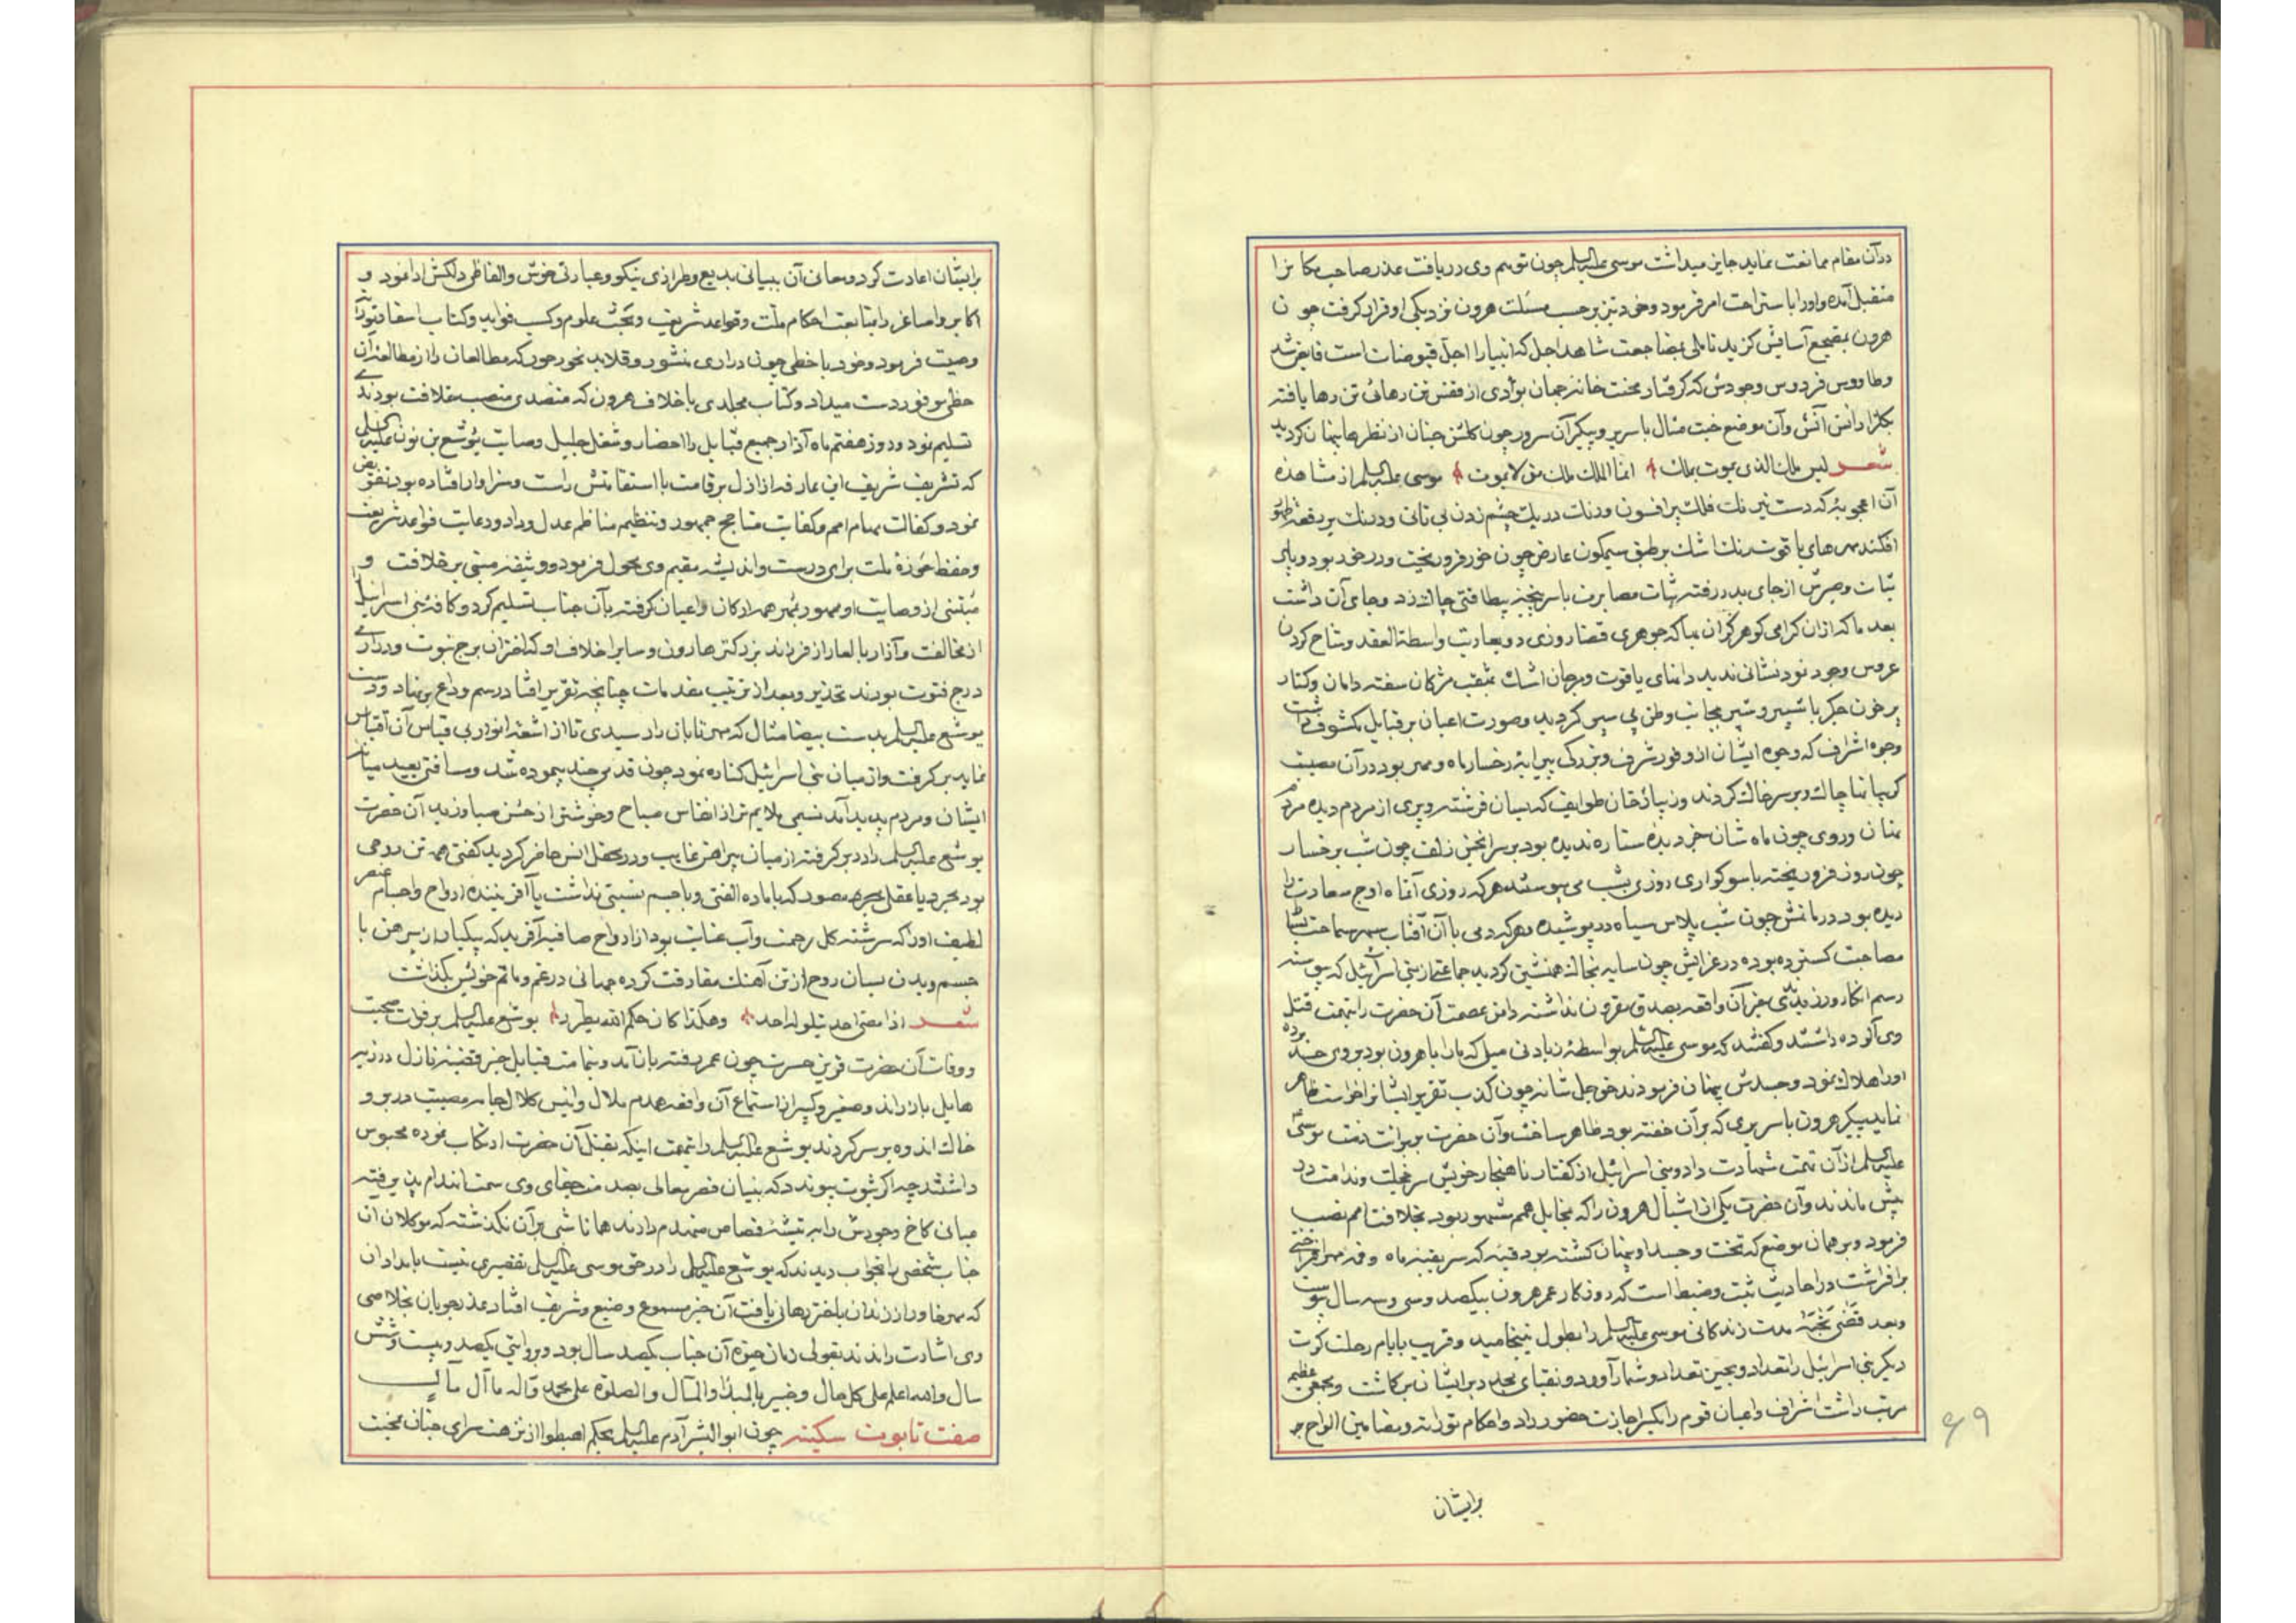 درآن مقام ممانعت نماید جایز میداشت موسی علیه السلم چون توهم وی دریافت عذر صاحب مکانرا
متقبل آمده واورا باستراحت امر فرمود وخود نیز برحسب مسئلت هرون نزدیکی او قرار کرفت چون
هرون بمضجع آسایش کزید تا ملی بمضاجعت شاهد اجل که انبیارا اجل فیوضات است فایض شد
وطاووس فردوس وجودش که کرفتار محنت خانه جهان بوادی از قفس تن رهائی تن رها یافته
بکلزار انس وآن موضع جنت مثال باسریر وپیکر آن سرور چون کلشن جنان از نظرها پنهان کردید
شعر لیس ملک الذی یموت بملک انما الملک ملک من لا یموت موسی علیه السلم از مشاهده
آن اعجوبه که دست نیرنک فلک پر افسون ورنک دریک چشم زدن بی تانی ودرنک بر بقعه ظهور
افکند مهرهای یاقوت رنک اشک بر طبق سیمکون عارض چون خور فروریخت ودرخود بود وپای
ثبات وصبرش از جای بدر رفته ثیاب مصابرت باسرپنجه بیطاقتی چاک زد وجای آن داشت
بعد ماکه ازان کرامی کوهر کران بها که جوهری قضا روزی دو بعاریت واسطة العقد وشاح کردن
عروس وجود نود نشانی ندید دانهای یاقوت ومرجان اشک بمثقب مژکان سفته دامان وکنار
پرخون جکر باشبیر وشبر بجانب وطن پی سپر کردید وصورت اعیان بر قبایل مکشوف داشت
وجوه اشراف که وجوه ایشان از وفور شرف وبزرکی پیرایه رخسار ماه ومهر بود درآن مصیبت
کریبانها چاک وبرسر خاک کردند وزیبارخان طوایف که بسان فرشته وپری از مردم دیده مردم
نهان وروی چون ماه شان جز دیده ستاره ندیده بود بر سر انجمن زلف چون شب بر رخسار
چون روز فروریخته باسوکواری روزی بشب می پیوستند هرکه روزی آنماه اوج سعادت را
دیده بود در ماتمش چون شب پلاس سیاه درپوشیده وهرکه دمی باآن آفتاب سپهر سماحت بساط
مصاحبت کسترده بوده درعزایش چون سایه بخاک همنشین کردید جماعتی از بنی اسرآئیل که پیوسته
رسم انکار ورزیدندی بغیر آن واقعه بصدق مقرون نداشته دامن عصمت آن حضرت را بتهمت قتل
وی آلوده داشتند وکفتند که موسی علیه السلم بواسطهٔ زیادتی میل که مارا باهرون بود بروی حسد برده
اورا هلاک نمود وجسدش پنهان فرمود ند حق جل شانه چون کذب تقریر ایشانرا خواست ظاهر
نماید پیکر هرون باسریری که برآن خفته بود ظاهر ساخت وآن حضرت ببرائت ذمت موسی
علیه السلم ازآن تهمت شهادت داد وبنی اسرائیل از کفتار ناهنجار خویش سر خجلت وندامت در
پیش ماندند وآن حضرت یکی از اشبال هرون را که بمخایل همم مشهور بود بخلافت امم نصب
فرمود وبر همان موضع که تخت وجسد او پنهان کشته بود قبه که سر بقبه ماه وقمه مهر افراختی
برافراشت دراحادیث ثبت وضبط است که روزکار عمر هرون بیکصد وسی وسه سال پیوست
وبعد قضی نحبه مدت زندکانی موسی علیه السلم را بطول نینجامید وقریب بایام رحلت کرت
دیکر بنی اسرئیل را تعداد وبحین تعداد وشمار آورد ونقبای مجدد برایشان برکماشت ومجمعی عظیم
مرتب داشت اشراف واعیان قوم را یکسر اجازت حضور داد واحکام توراته ومضامین الواح بر
برایشان
۶۹
برایشان اعادت کرد ومعانی آن ببیانی بدیع وطرازی نیکو وعبارتی خوش والفاظی دلکش ادا نمود و
اکابر واصاغر را بمتابعت احکام ملت وقواعد شریعت وبحث علوم وکسب فواید وکتاب اسفار توراة
وصیت فرمود وخود باخطی چون دراری منثور وقلاید نحور حور که مطالعان را از مطالعه آن
حظی موفور دست میداد وکتاب مجلدی باخلاف هرون که متصدی منصب خلافت بودندے
تسلیم نمود ودوز هفتم ماه آذار جمیع قبایل را احضار وشغل جلیل وصایت یوشع بن نون علیه السلم
که تشریف شریف این عارفه از ازل بر قامت بااستقامتش راست وسزاوار افتاده بود تفویض
نمود وکفالت مهام امم وکفایت مناجح جمهور وتنظیم مناظم عدل وداد ورعایت قواعد شریعت
وحفظ حوزهٔ ملت برای درست واندیشه مقیم وی محول فرمود ووثیقه مبتنی بر خلافت و
مبتنی از وصایت او ممهور بمهر همه ارکان واعیان کرفته بآن جناب تسلیم کرد وکافه بنی اسرائیل
از مخالفت وآزار بالعاراز فرزند بزرکتر هارون وسایر اخلاف او که اختران برج نبوت ودرارے
درج فتوت بودند تحذیر وبعد از ترتیب مقدمات چنانچه تقریر افتاد رسم وداع بنهاد ودست
یوشع علیه السلم بدست بیضا مثال که مهر تابان راد سیدی تا از اشعه انوار بی قیاس آن اقتباس
نماید برکرفت واز میان بنی اسرائیل کناره نمود چون قدمی چند پیموده شد ومسافتی بعید میان
ایشان ومردم پدید آمد نسیمی ملایم تراز انفاس صباح وخوشتر از حسن صبا وزید آن حضرت
یوشع علیه السلم را دربر کرفته از میان پیراهن غایب ودر محفل انس حاضر کردید کفتی همه تن روحی
بود مجرد یا عقل مصور که باماده الفتی وباجسم نسبتی نداشت یاآفریننده ارواح واجسام عنصر
لطیف اورا که سرشته کل رحمت وآب عنایت بود از ارواح صافیه آفرید که یکباره از پیرهن با
جسم وبدن بسان روح از تن آهنک مفارقت کرده جهانی درغم وماتم خویش بکذاشت
شعر اذا مضی احد یتلوله احد وهکذا کان حکم الله یطرد یوشع علیه السلم بر فوات صحبت
ووفات آن حضرت قرین حسرت چون عمر رفته بازآمد وبماتمت قبایل خبر قضیه نازل ورزیه
هایل بازراند وصغیر وکبیر از استماع آن واقعه هدم ملال وانیس کلال جامه مصیبت دربر و
خاک اندوه بر سر کردند یوشع علیه السلم را بتهمت اینکه بقتل آن حضرت ارتکاب نموده محبوس
داشتند چه اکر بثوت پیوندد که بنیان قصر معالی بصدمت جفای وی سمت انهدام پذیرفته
مبانی کاخ وجودش را به تیشه قصاص منهدم دارند همانا شبی برآن نکذشته که موکلان آن
جناب شخصی را بخواب دیدند که یوشع علیه السلم را درحق موسی علیه السلم تقصیری نیست بامدادان
که مهر خاور از زندان باختر رهائی یافت آن خبر مسموع وضیع وشریف افتاد عذرجویان بخلاصی
وی اشارت راندند بقولی زمان حیوة آن جناب یکصد سال بود وبروایتی یکصد وبیست وشش
سال والله اعلم علی کل حال وخبیر بالمبدٔا والمآل والصلوة علی محمد وآله ما آل مآل
صفت تابوت سکینه چون ابوالبشر آدم علیه السلم بحکم اهبطوا از نزهت سرای جنان بمحنت